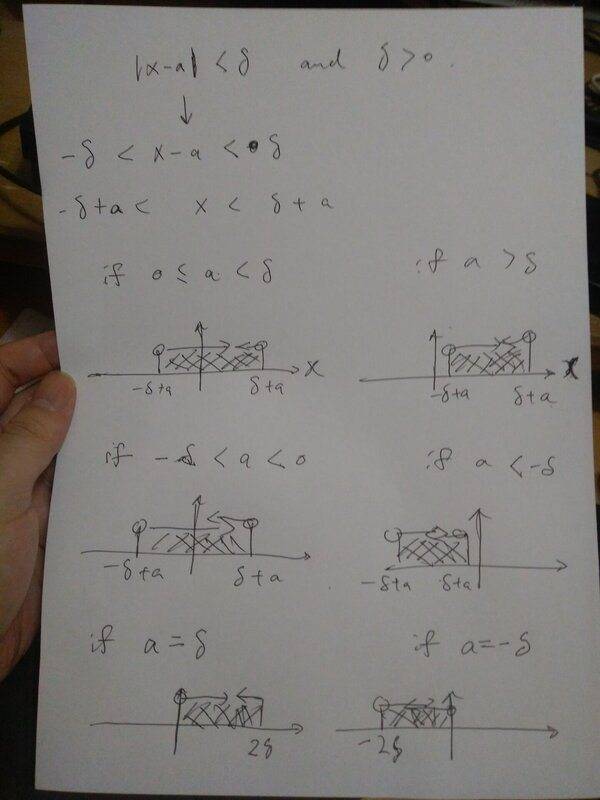 |x-a| < δ and δ > 0.
-δ < x-a < δ
-δ+a < x < δ+a
if 0 ≤ a < δ
if a > δ
x
-δ+a δ+a
x
-δ+a δ+a
if -δ < a < 0
if a < -δ
-δ+a δ+a
-δ+a δ+a
if a = δ
if a = -δ
2δ
-2δ